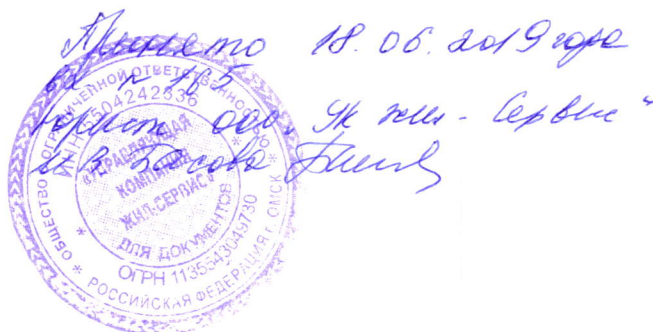 Принято 18.06.2019 года
вх н 165
юрист ООО "УК Жил-Сервис"
Басова
ОБЩЕСТВО С ОГРАНИЧЕННОЙ ОТВЕТСТВЕННОСТЬЮ
ИНН 5504242536
«УПРАВЛЯЮЩАЯ
КОМПАНИЯ
ЖИЛ-СЕРВИС»
ДЛЯ ДОКУМЕНТОВ
ОГРН 1135543049730
* РОССИЙСКАЯ ФЕДЕРАЦИЯ г. ОМСК *